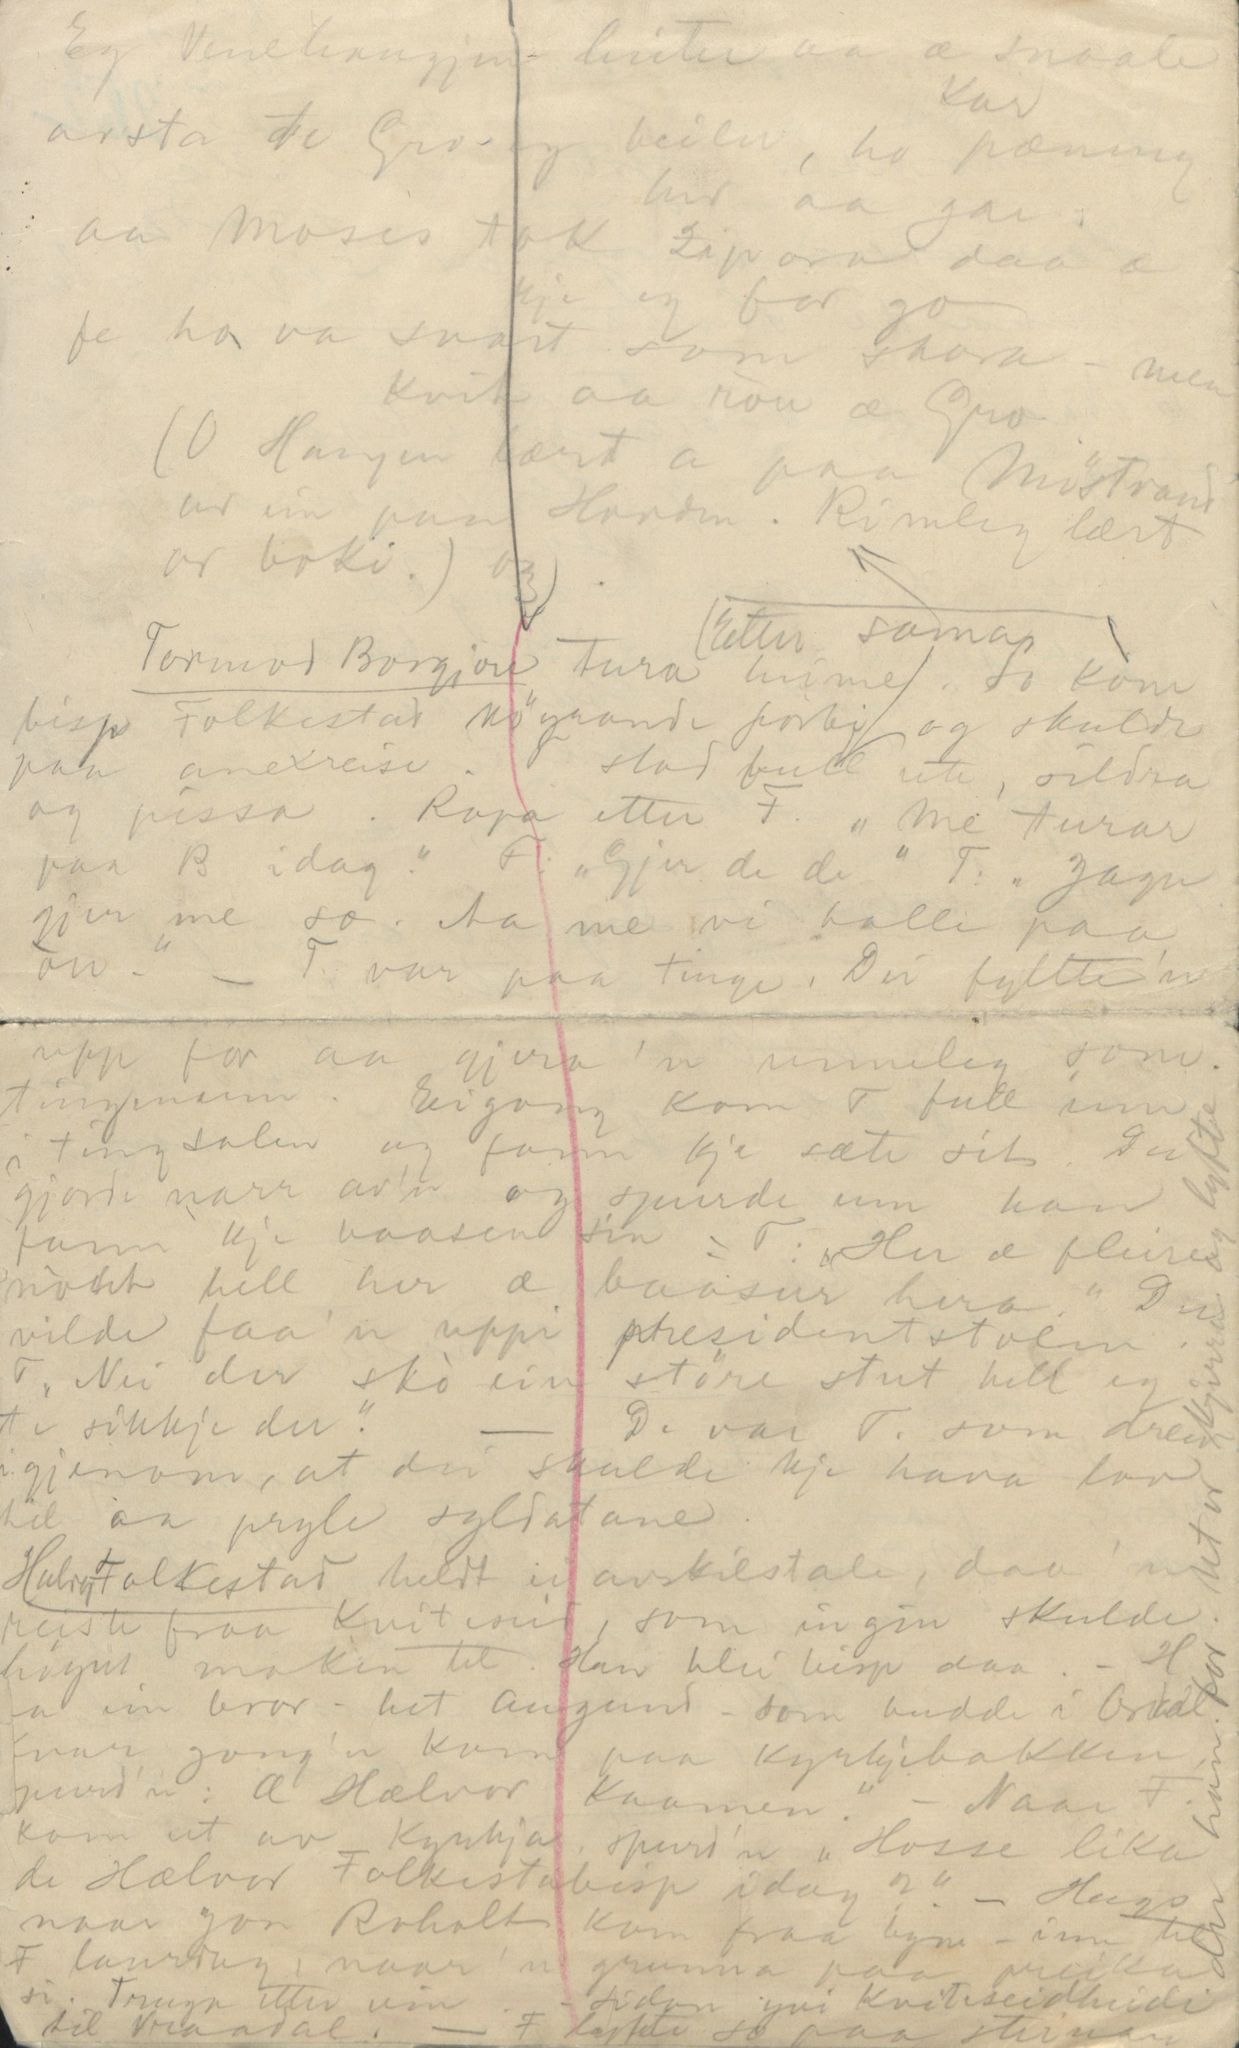 Eg Venehaugjen hiter aa æ snaale
kar
avsta te Gro eg beiler, ho pæning
her aa gar.
aa Moses tok Zipora daa æ
kje eg for go
fe ho va svart som skora - men
kvit aa rou æ Gro
(O Haugen lært a paa Möstrand
av ein paa Hovden. Rimleg lært
or boki.)
(Etter somar
Tormod Borgjore tura heime). So kom
bisp Folkestad köyrande forbi og skulde
paa anexreise. T stod full ute, sildra
og pissa. Ropa etter F. "Me turar
paa B idag." F: "Gjer de de" T: "Jagu
gjer me so. Aa me vi halle paa
ou." — T. var paa tinge. Dei fyllte'n
upp for aa gjera'n umueleg som
tingmann. Eigong kom T full inn
i tingsalen og fann kje sæte sit. Dei
gjorde narr av'n og spurde um han
fann kje baasen sin - T: "Her æ fleire
nöt hell her æ baasur hera." Dei
vilde faa'n uppi presidentstolen.
T. "Nei der sko ein störe stut hell eg
te sikkje der." — De var T. som dreiv
igjenom, at dei skulde kje hava lov
til aa pryle syldatane.
Halvor Folkestad heldt ei avskilstale, daa'n
reiste fraa Kviteseid, som ingin skulde
høyrt maken til. Han blei bisp daa. - H
a ein bror - het Augund - som budde i
kvar gong'n kom paa kyrkjebakken,
spurd'n: Æ Hælvor kaamen." - Naar F.
kom ut av kyrkja, spurd'n "Hosse lika
de Hælvor Folkestabisp idag?" — Hugs
naar Jon Roholt kom fraa bygne - inn til
F laurdag, naar'n grunna paa preika
si. Truga etter vin. - sidan yvi Kviteseidheidi
til Vraadal. — F lyfte so paa
der han for. Ut or kjerra og lyfte